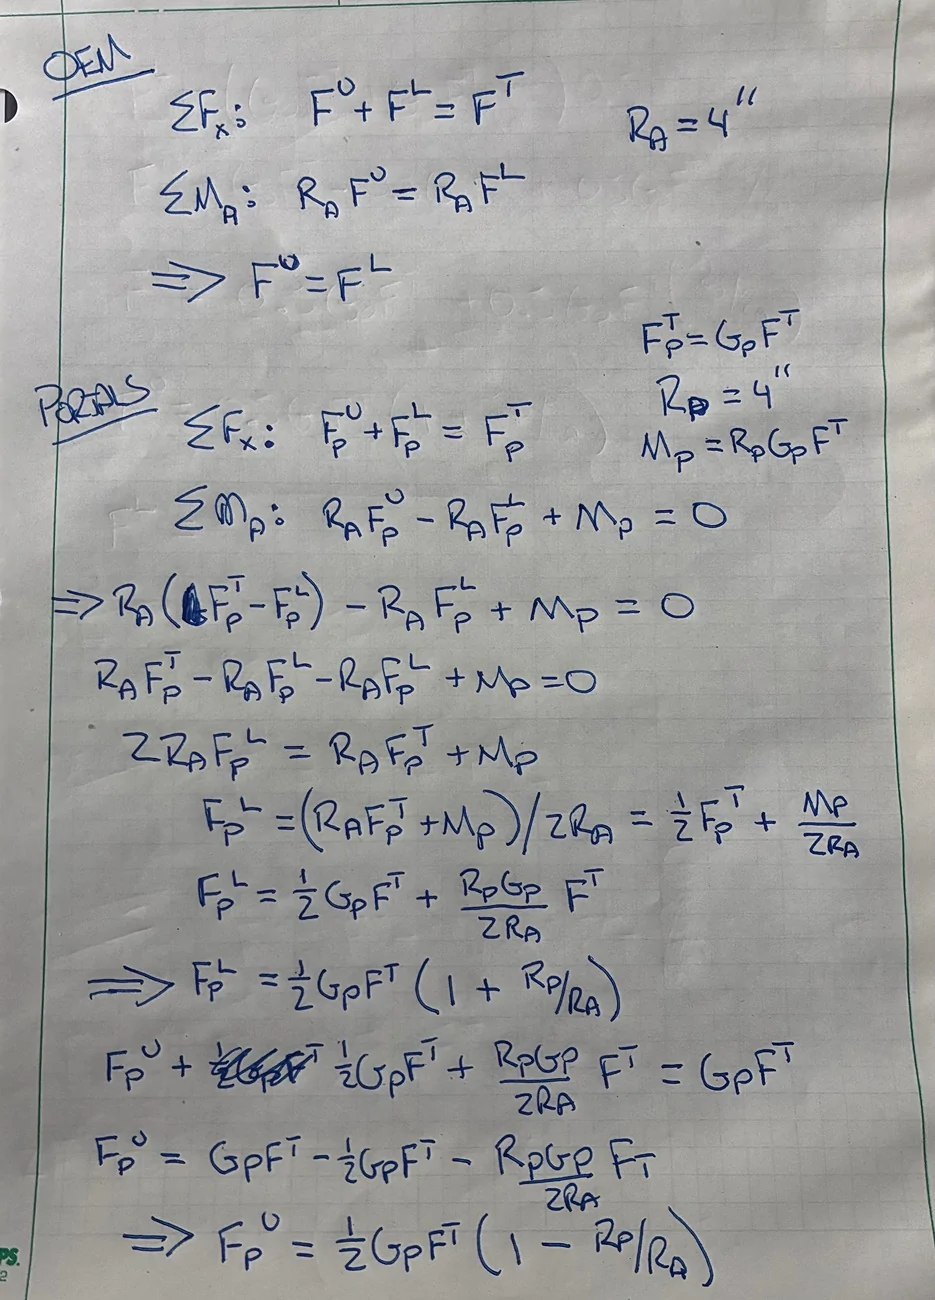 OEM
ΣFₓ: Fᵁ + Fᴸ = Fᵀ
R_A = 4"
ΣM_A: R_A Fᵁ = R_A Fᴸ
⇒ Fᵁ = Fᴸ
F_P^T = G_P F^T
PORTALS
R_P = 4"
ΣFₓ: F_P^U + F_P^L = F_P^T
M_P = R_P G_P F^T
ΣM_A: R_A F_P^U - R_A F_P^L + M_P = 0
⇒ R_A (F_P^T - F_P^L) - R_A F_P^L + M_P = 0
R_A F_P^T - R_A F_P^L - R_A F_P^L + M_P = 0
2R_A F_P^L = R_A F_P^T + M_P
F_P^L = (R_A F_P^T + M_P)/2R_A = ½ F_P^T + M_P/2R_A
F_P^L = ½ G_P F^T + R_P G_P/2R_A F^T
⇒ F_P^L = ½ G_P F^T (1 + R_P/R_A)
F_P^U + ½ G_P F^T + R_P G_P/2R_A F^T = G_P F^T
F_P^U = G_P F^T - ½ G_P F^T - R_P G_P/2R_A F_T
⇒ F_P^U = ½ G_P F^T (1 - R_P/R_A)
PS.
2